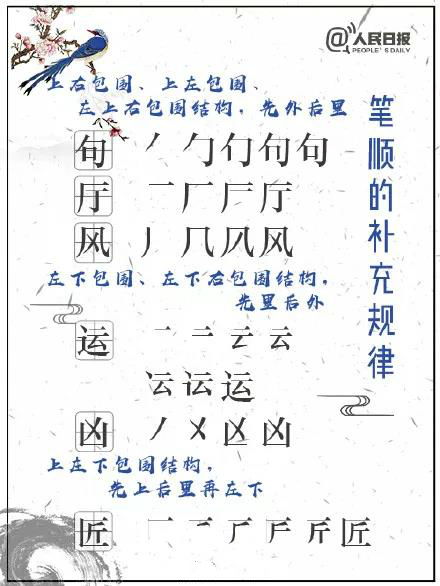 @人民日报
PEOPLE'S DAILY
笔顺的补充规律
上右包围、上左包围、
左上右包围结构，先外后里
句 丿 勹 勹 句 句
厅 一 厂 厂 厅
风 丿 几 风 风
左下包围、左下右包围结构，
先里后外
运 一 二 云 云
云 运 运
凶 丿 㐅 凶 凶
上左下包围结构，
先上后里再左下
匠 一 匚 斤 匠